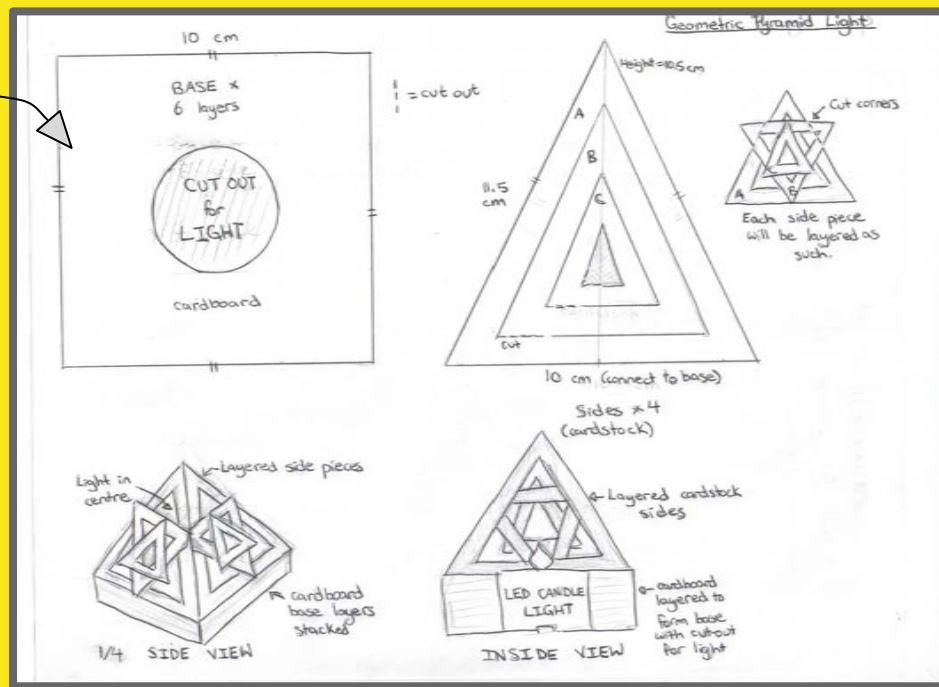 Geometric Pyramid Light
10 cm
BASE ×
6 layers
= cut out
CUT OUT
for
LIGHT
cardboard
Height=10.5cm
A
B
C
11.5
cm
cut
10 cm (connect to base)
Sides × 4
(cardstock)
Cut corners
A
B
Each side piece
will be layered as
such.
Light in
centre
Layered side pieces
cardboard
base layers
stacked
1/4 SIDE VIEW
Layered cardstock
sides
LED CANDLE
LIGHT
cardboard
layered to
form base
with cutout
for light
INSIDE VIEW